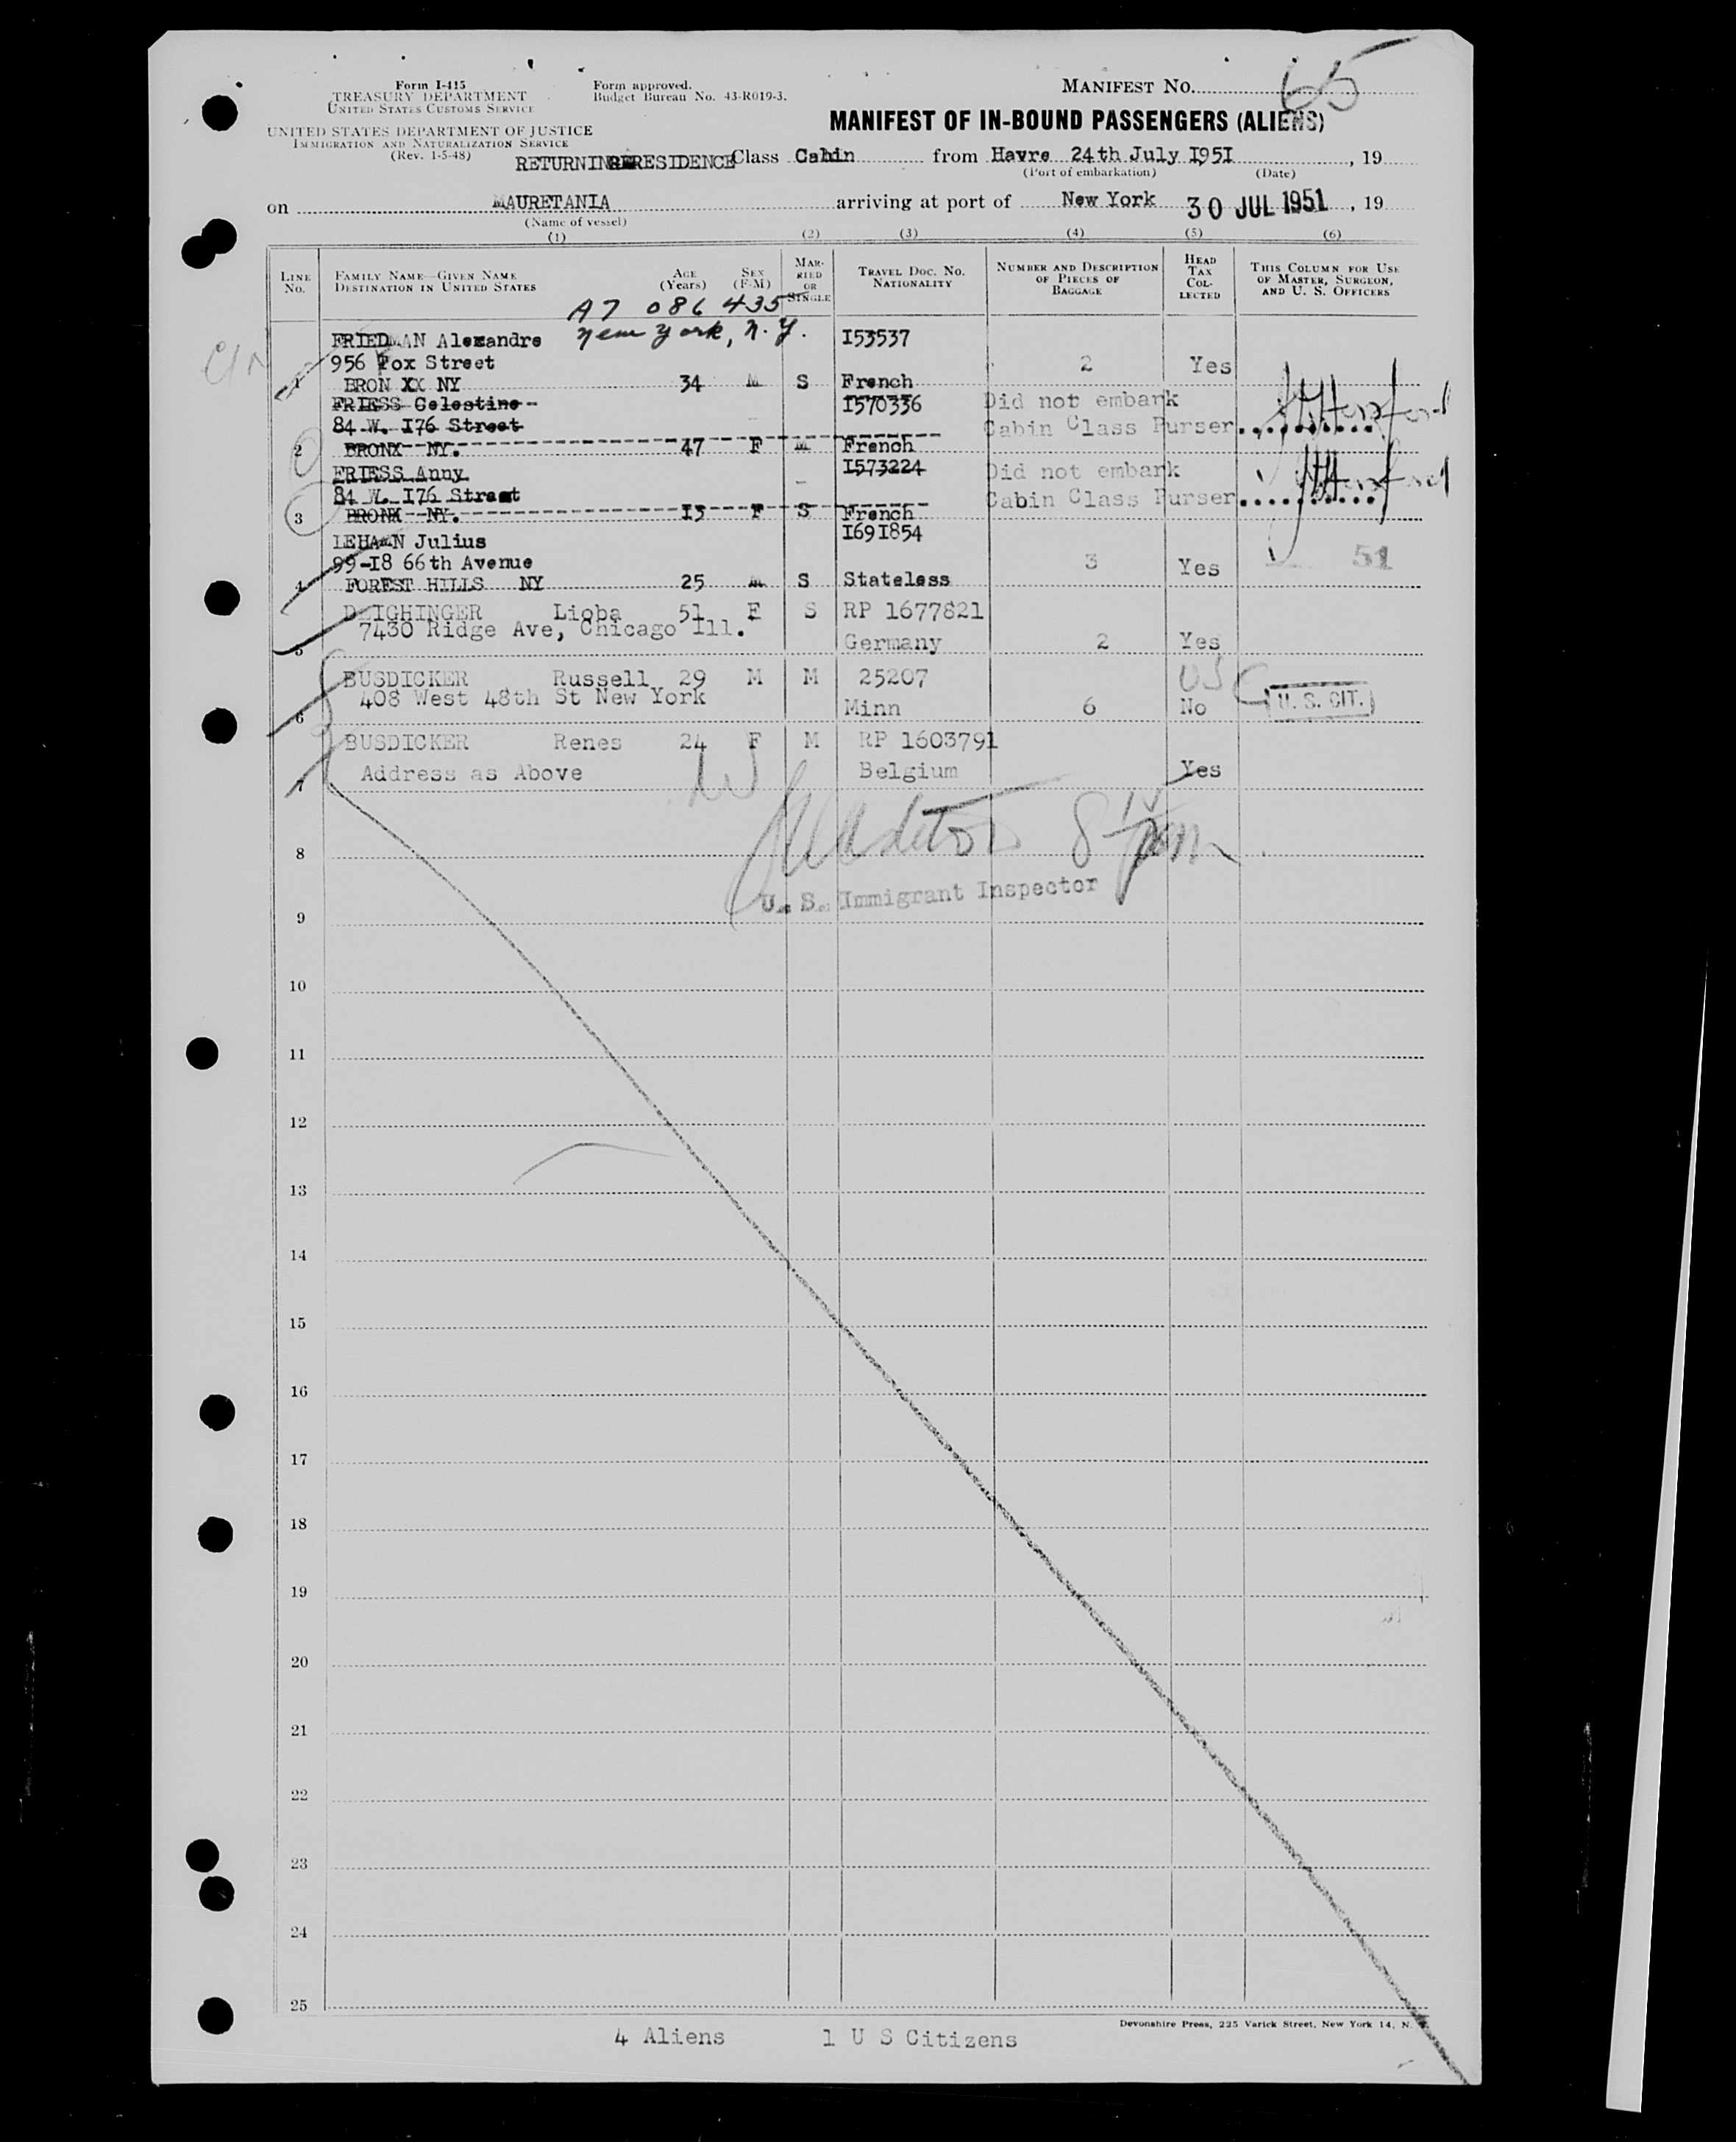 Form I-415
TREASURY DEPARTMENT
UNITED STATES CUSTOMS SERVICE
UNITED STATES DEPARTMENT OF JUSTICE
IMMIGRATION AND NATURALIZATION SERVICE
(Rev. 1-5-48)
Form approved.
Budget Bureau No. 43-R019-3.
MANIFEST NO. 65
MANIFEST OF IN-BOUND PASSENGERS (ALIENS)
RETURNING RESIDENCE Class Cabin from Havre 24th July I95I, 19
(Port of embarkation) (Date)
on MAURETANIA arriving at port of New York 30 JUL 1951, 19
(Name of vessel)
(1) (2) (3) (4) (5) (6)
LINE NO.
FAMILY NAME—GIVEN NAME
DESTINATION IN UNITED STATES
AGE (Years)
SEX (F-M)
MARRIED OR SINGLE
TRAVEL DOC. NO. NATIONALITY
NUMBER AND DESCRIPTION OF PIECES OF BAGGAGE
HEAD TAX COLLECTED
THIS COLUMN FOR USE OF MASTER, SURGEON, AND U. S. OFFICERS
A7 086 435
FRIEDMAN Alexandre New York, N.Y. I53537
956 Fox Street 2 Yes
1 BRON XX NY 34 M S French
FRIESS Celestine I570336 Did not embark
84 W. I76 Street Cabin Class Purser
2 BRONX NY. 47 F M French
FRIESS Anny I573224 Did not embark
84 W. I76 Street Cabin Class Purser
3 BRONX NY. I3 F S French
LEHMAN Julius I69I854
99-I8 66th Avenue 3 Yes 51
4 FOREST HILLS NY 25 M S Stateless
DEIGHINGER Lioba 51 F S RP 1677821
7430 Ridge Ave, Chicago Ill.
5 Germany 2 Yes
BUSDICKER Russell 29 M M 25207 USC
408 West 48th St New York
6 Minn 6 No U. S. CIT.
BUSDICKER Renes 24 F M RP 1603791
Address as Above Belgium Yes
7
8
U. S. Immigrant Inspector
9
10
11
12
13
14
15
16
17
18
19
20
21
22
23
24
25
Devonshire Press, 225 Varick Street, New York 14, N.
4 Aliens 1 U S Citizens